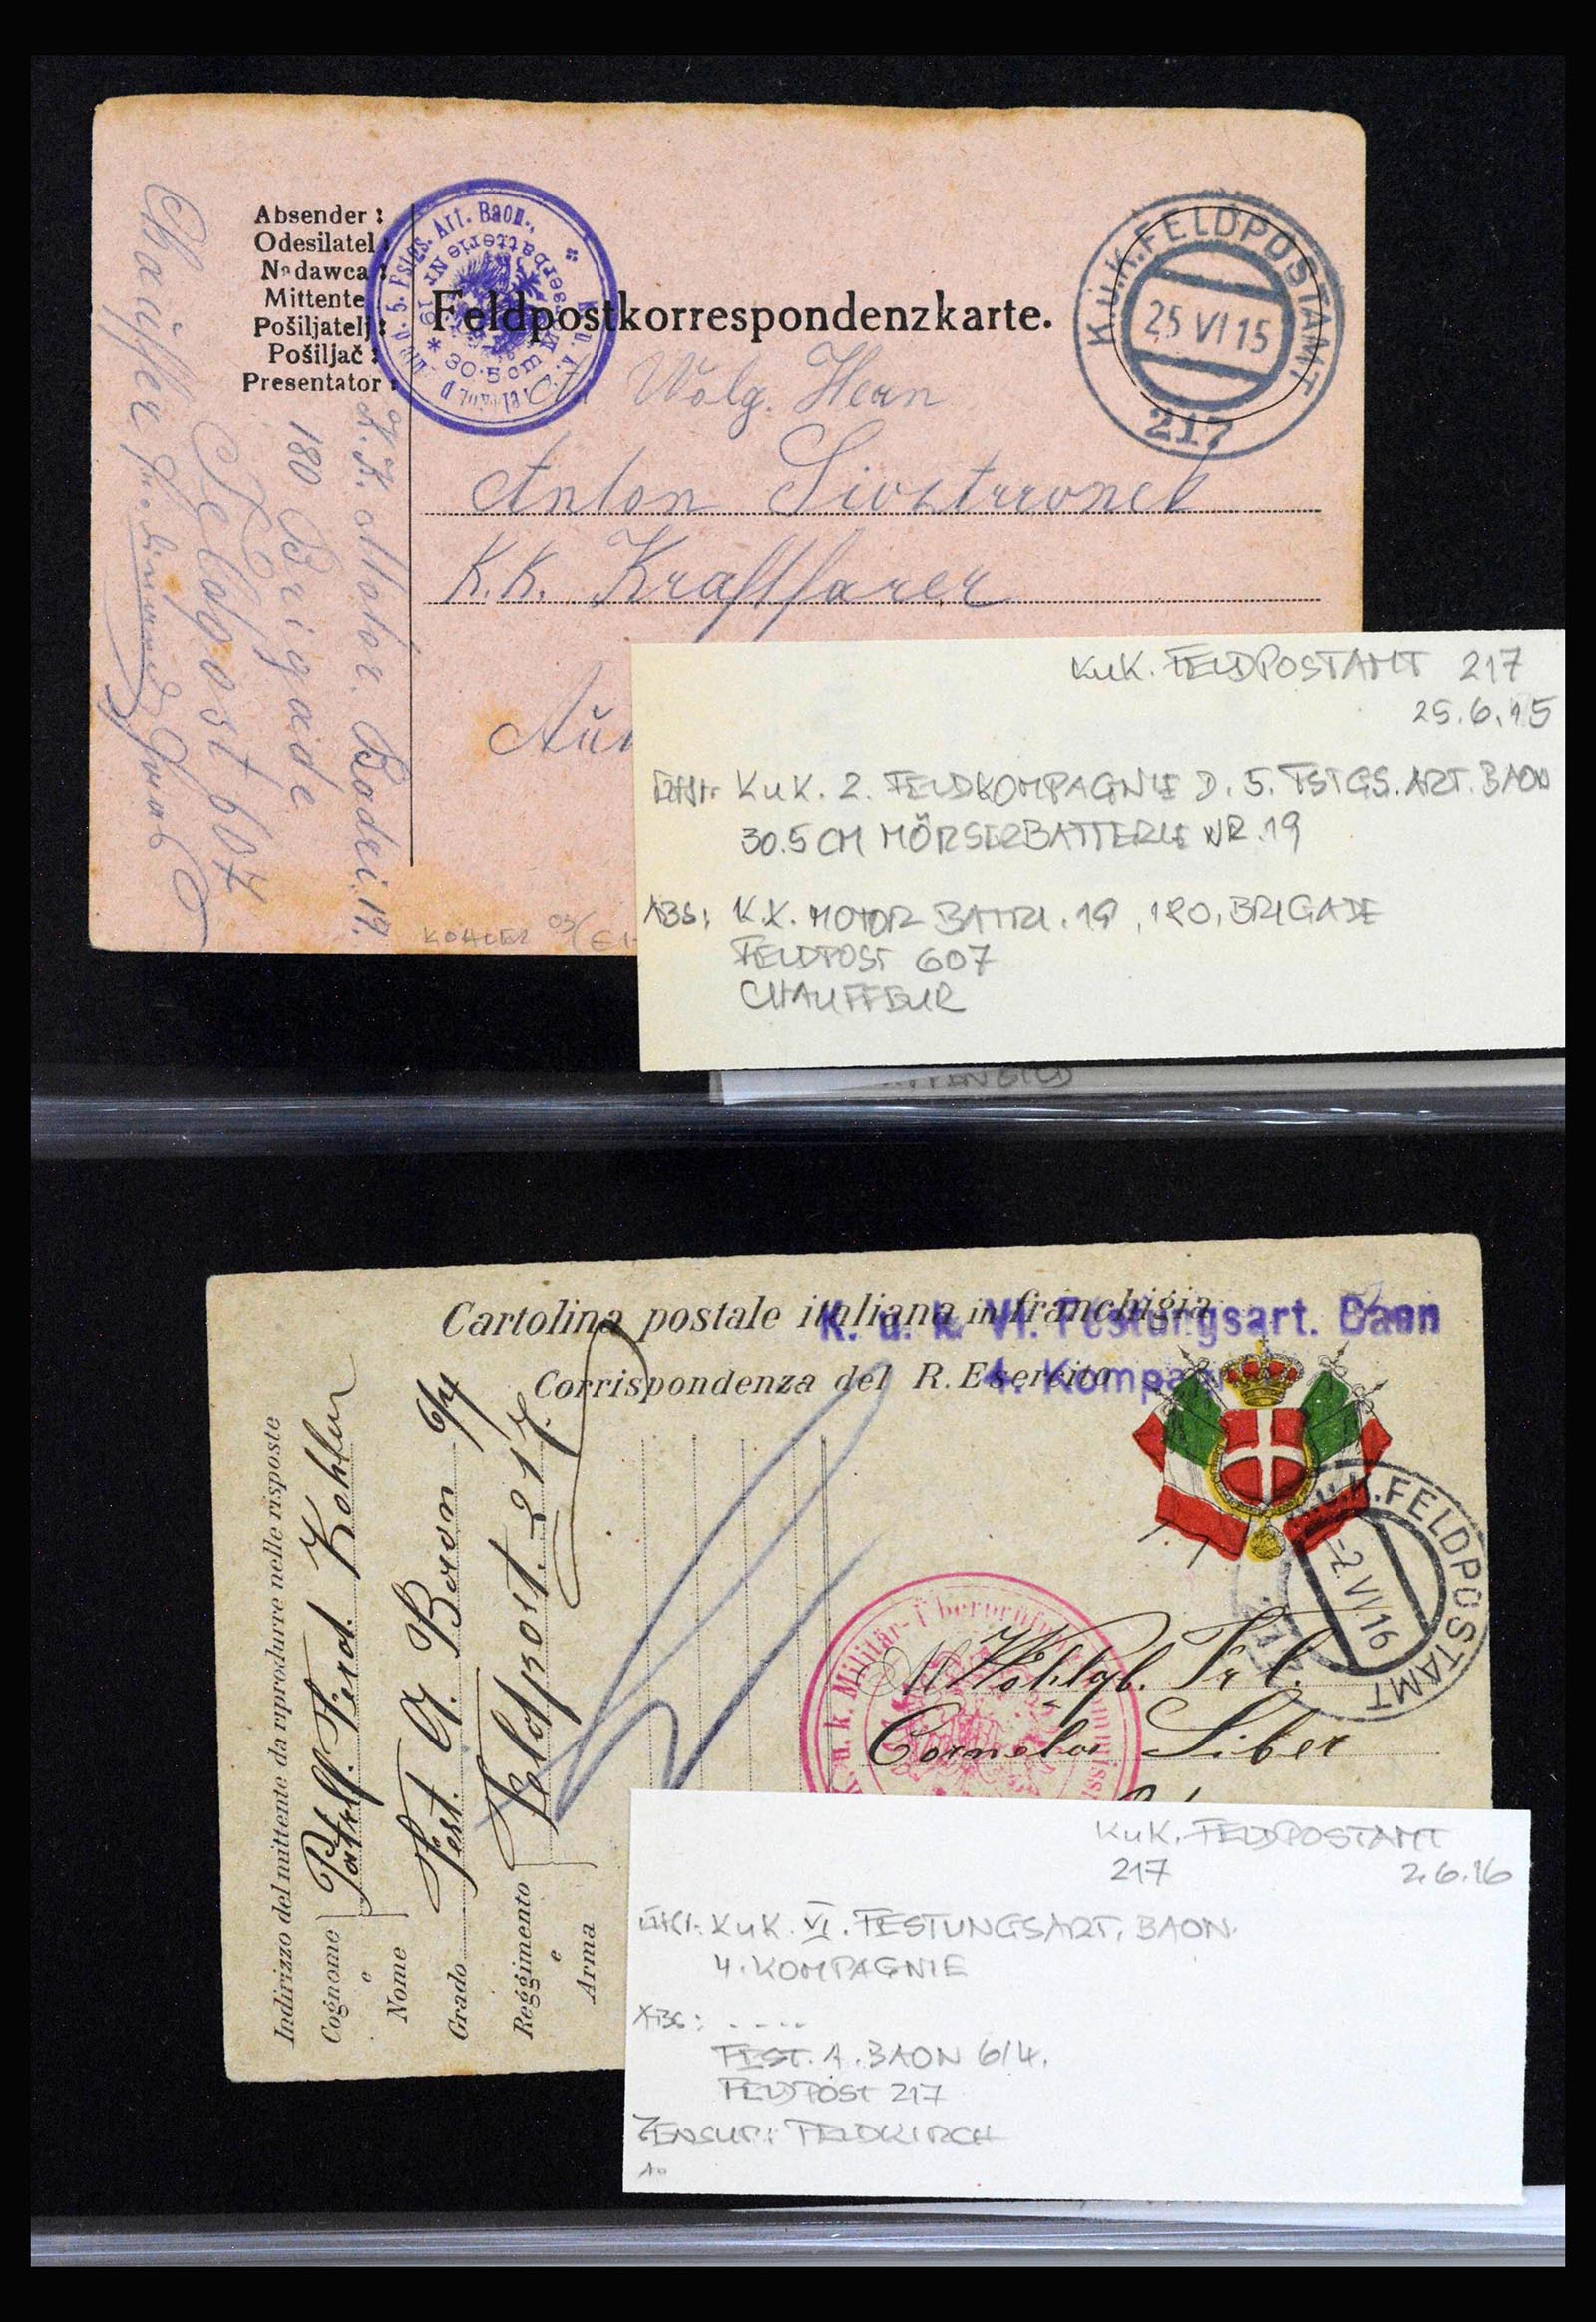 Absender:
Odesilatel:
Nadawca:
Mittente
Pošiljatelj:
Pošiljač:
Presentator:
5. Fstgs. Art. Baon.,
30.5 cm Mörserbatterie Nr 19
Feldpostkorrespondenzkarte.
K.u.K. FELDPOSTAMT
25 VI 15
217
Wolg. Herrn
Anton
K.K. Kraftfarer
K.K. Motor. Badri. 19.
180 Brigade
Feldpost 607
Chauffer
KOHLER 03
KuK. FELDPOSTAMT 217
25.6.15
KuK. 2. FELDKOMPAGNIE D. 5. FSTGS. ART. BAON
30.5 CM MÖRSERBATTERIE NR. 19
ABS: K.K. MOTOR BATTRI. 19, 180. BRIGADE
FELDPOST 607
CHAUFFEUR
Cartolina postale italiana in franchigia
K. u. k. VI. Festungsart. Baon
Corrispondenza del R. Esercito
4. Kompa
u.K. FELDPOSTAMT
-2 VI 16
K. u. k. Militär-Überprüf
Wohlgb. Frl.
Cornelia Siber
Indirizzo del mittente da riprodurre nelle risposte
Cognome
e
Nome
Grado
Reggimento
e
Arma
Ferd. Kohler
Fest. A. Baon 6/4
Feldpost. 217.
KuK. FELDPOSTAMT
217 2.6.16
KuK. VI. FESTUNGSART. BAON.
4. KOMPAGNIE
ABS: ....
FEST. A. BAON 6/4.
FELDPOST 217
ZENSUR: FELDKIRCH